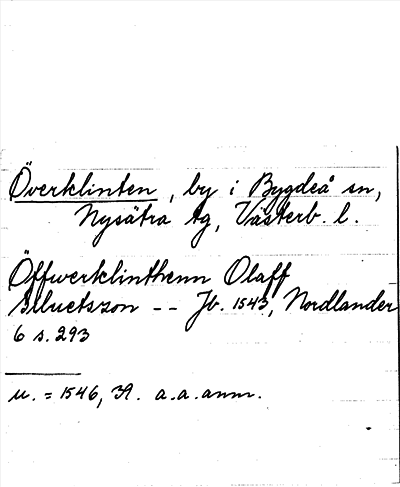 Överklinten, by i Bygdeå sn,
Nysätra tg, Västerb. l.
Öffwerklinthenn Olaff
Slluetszon -- Jb. 1543, Nordlander
6 s. 293
u. = 1546, a. a. anm.